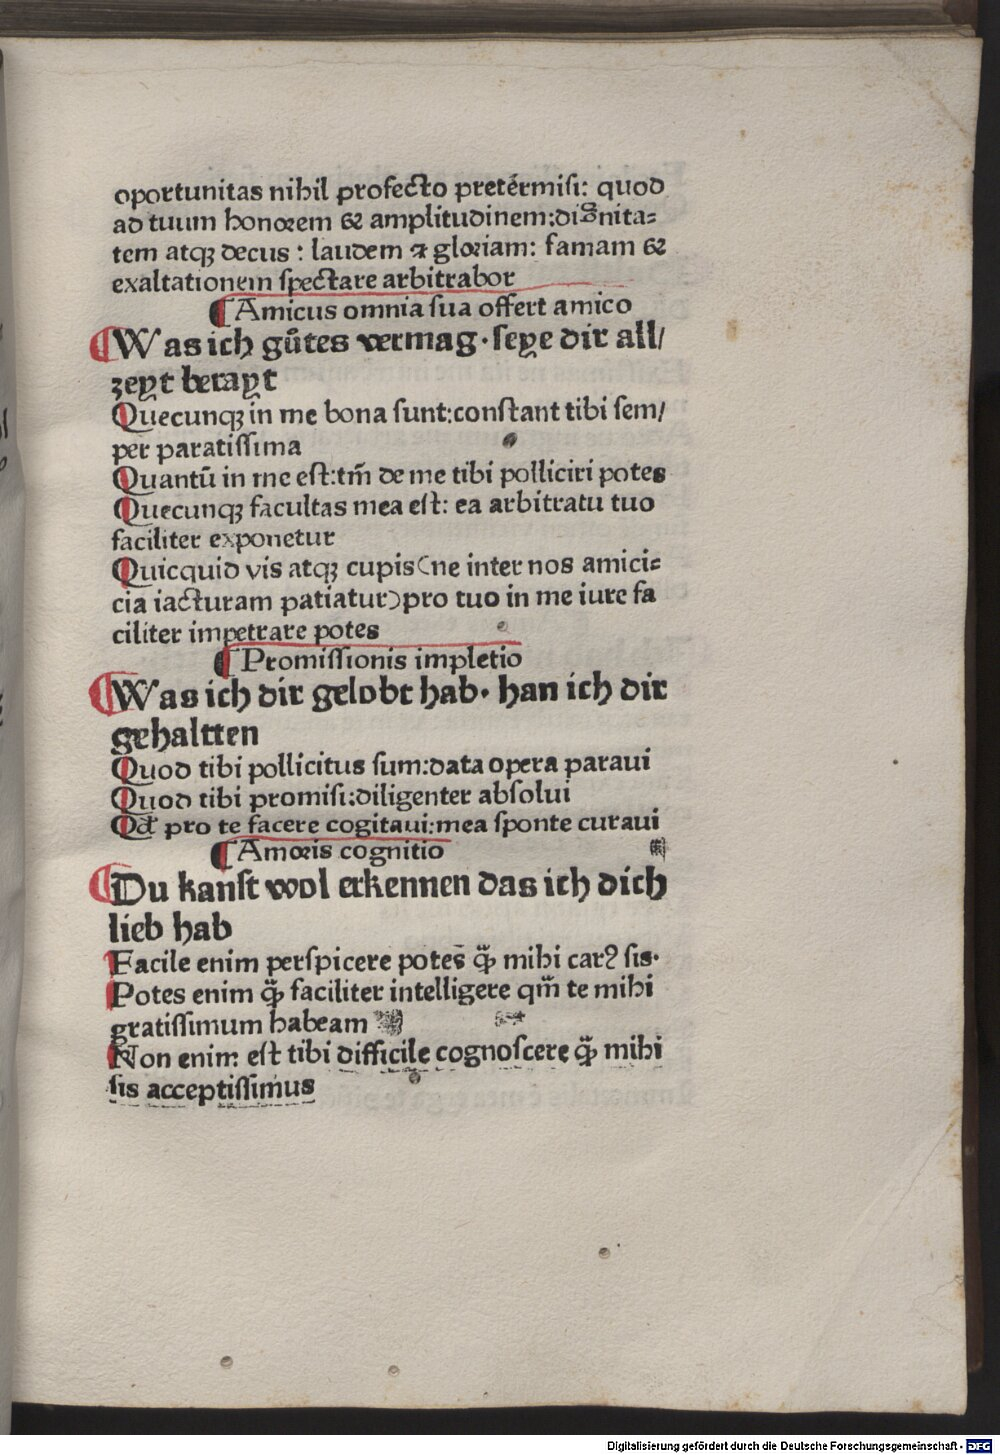 oportunitas nihil profecto pretermiſi: quod
ad tuum honorem & amplitudinem:dignita⸗
tem atqꝫ decus : laudem ⁊ gloriam: famam &
exaltationem ſpectare arbitrabor
¶ Amicus omnia ſua offert amico
¶ Was ich gůtes vermag · ſeye dir all/
zeyt berayt
Quecunqꝫ in me bona ſunt:conſtant tibi ſem/
per paratiſſima
Quantū in me eſt:tm̄ de me tibi polliciri potes
Quecunqꝫ facultas mea eſt: ea arbitratu tuo
faciliter exponetur
Quicquid vis atqꝫ cupis (ne inter nos amici⸗
cia iacturam patiatur) pro tuo in me iure fa
ciliter impetrare potes
¶ Promiſſionis impletio
¶ Was ich dir gelobt hab · han ich dir
gehaltten
Quod tibi pollicitus ſum:data opera paraui
Quod tibi promiſi:diligenter abſolui
Qd̛ pro te facere cogitaui:mea ſponte curaui
¶ Amoris cognitio
¶ Du kanſt wol erkennen das ich dich
lieb hab
Facile enim perſpicere potes q̃ꝫ mihi carꝰ ſis·
Potes enim q̃ꝫ faciliter intelligere qm̄ te mihi
gratiſſimum habeam
Non enim eſt tibi difficile cognoſcere q̃ꝫ mihi
ſis acceptiſſimus
Digitalisierung gefördert durch die Deutsche Forschungsgemeinschaft - DFG